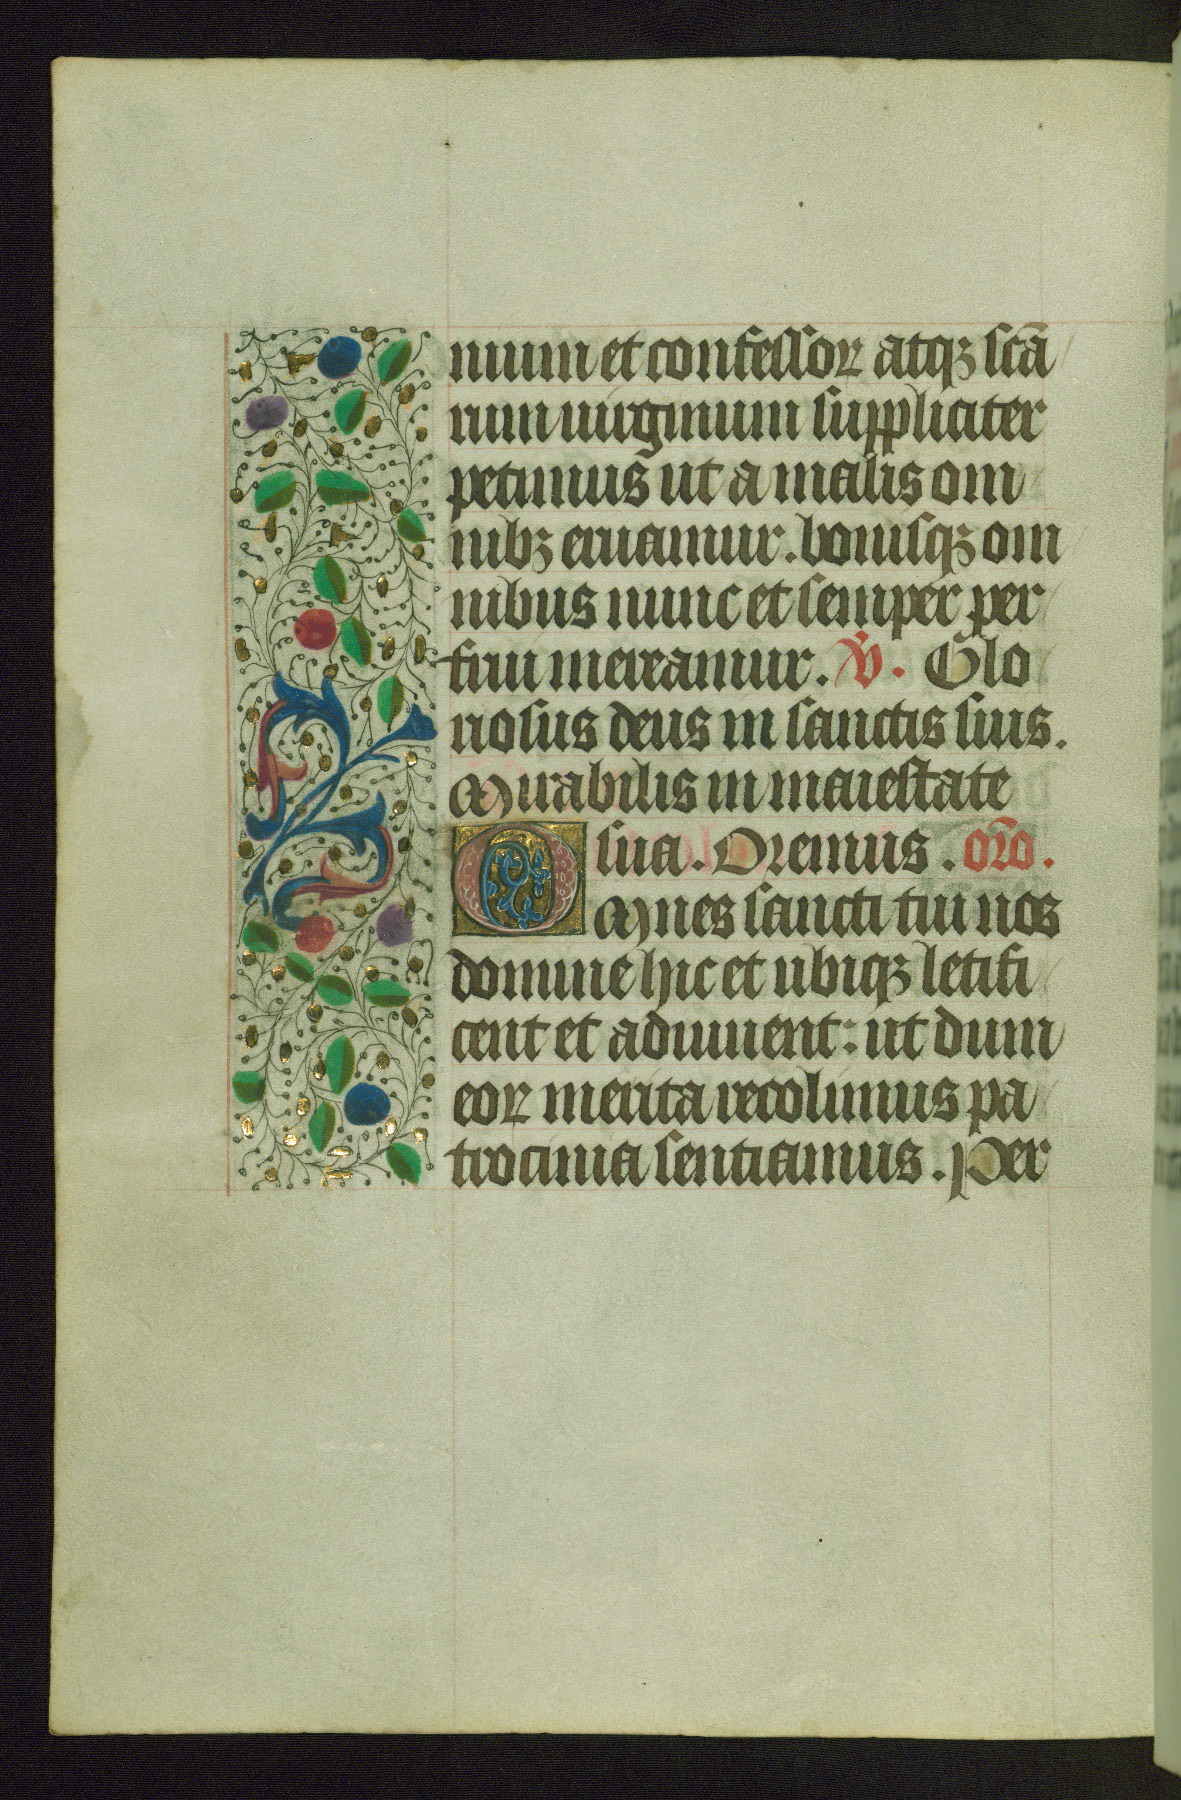 mium et confessoꝝ atqꝫ scā
rum uirginum suppliciter
petimus ut a malis om
nibꝫ eruamur. bonisqꝫ om
nibus nunc et semper per
frui mereamur. ℣. Glo
riosus deus in sanctis suis.
Mirabilis in maiestate
sua. Oremus. or̄o.
OMnes sancti tui nos
domine hic et ubiqꝫ letifi
cent et adiuuent: ut dum
eoꝝ merita recolimus pa
trocinia sentiamus. Per